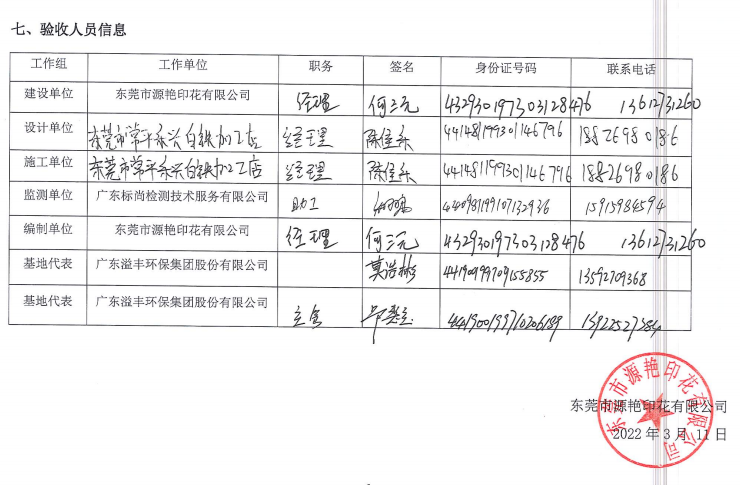 七、验收人员信息
工作组 工作单位 职务 签名 身份证号码 联系电话
建设单位 东莞市源艳印花有限公司 经理 何三元 432930197303128476 13612731260
设计单位 东莞市常平永兴白铁加工店 经理 陈佳永 441481199301146796 18826980186
施工单位 东莞市常平永兴白铁加工店 经理 陈佳永 441481199301146796 18826980186
监测单位 广东标尚检测技术服务有限公司 助工 440981199107132936 15915984594
编制单位 东莞市源艳印花有限公司 经理 何三元 432930197303128476 13612731260
基地代表 广东溢丰环保集团股份有限公司 莫浩彬 13592709368
基地代表 广东溢丰环保集团股份有限公司 441900199710206189
东莞市源艳印花有限公司
东莞市源艳印花有限公司
2022 年 3 月 11 日